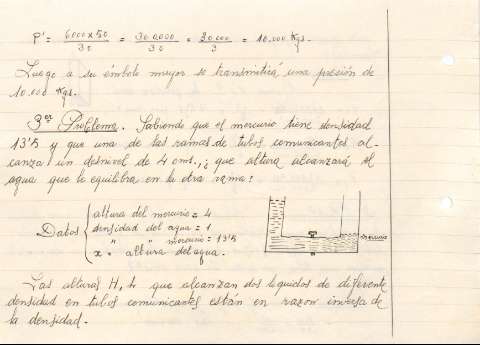 P' = 6000 x 50 / 30 = 300.000 / 30 = 30.000 / 3 = 10.000 Kgs.
Luego a su émbolo mayor se transmitirá una presión de
10.000 Kgs.
3er Problema. Sabiendo que el mercurio tiene densidad
13'5 y que una de las ramas de tubos comunicantes al-
canza un desnivel de 4 cms., ¿que altura alcanzará el
agua que le equilibra en la otra rama?
Datos { altura del mercurio = 4
densidad del agua = 1
" " mercurio = 13'5
x = altura del agua.
mercurio
Las alturas H, h que alcanzan dos liquidos de diferente
densidad en tubos comunicantes están en razon inversa de
la densidad.